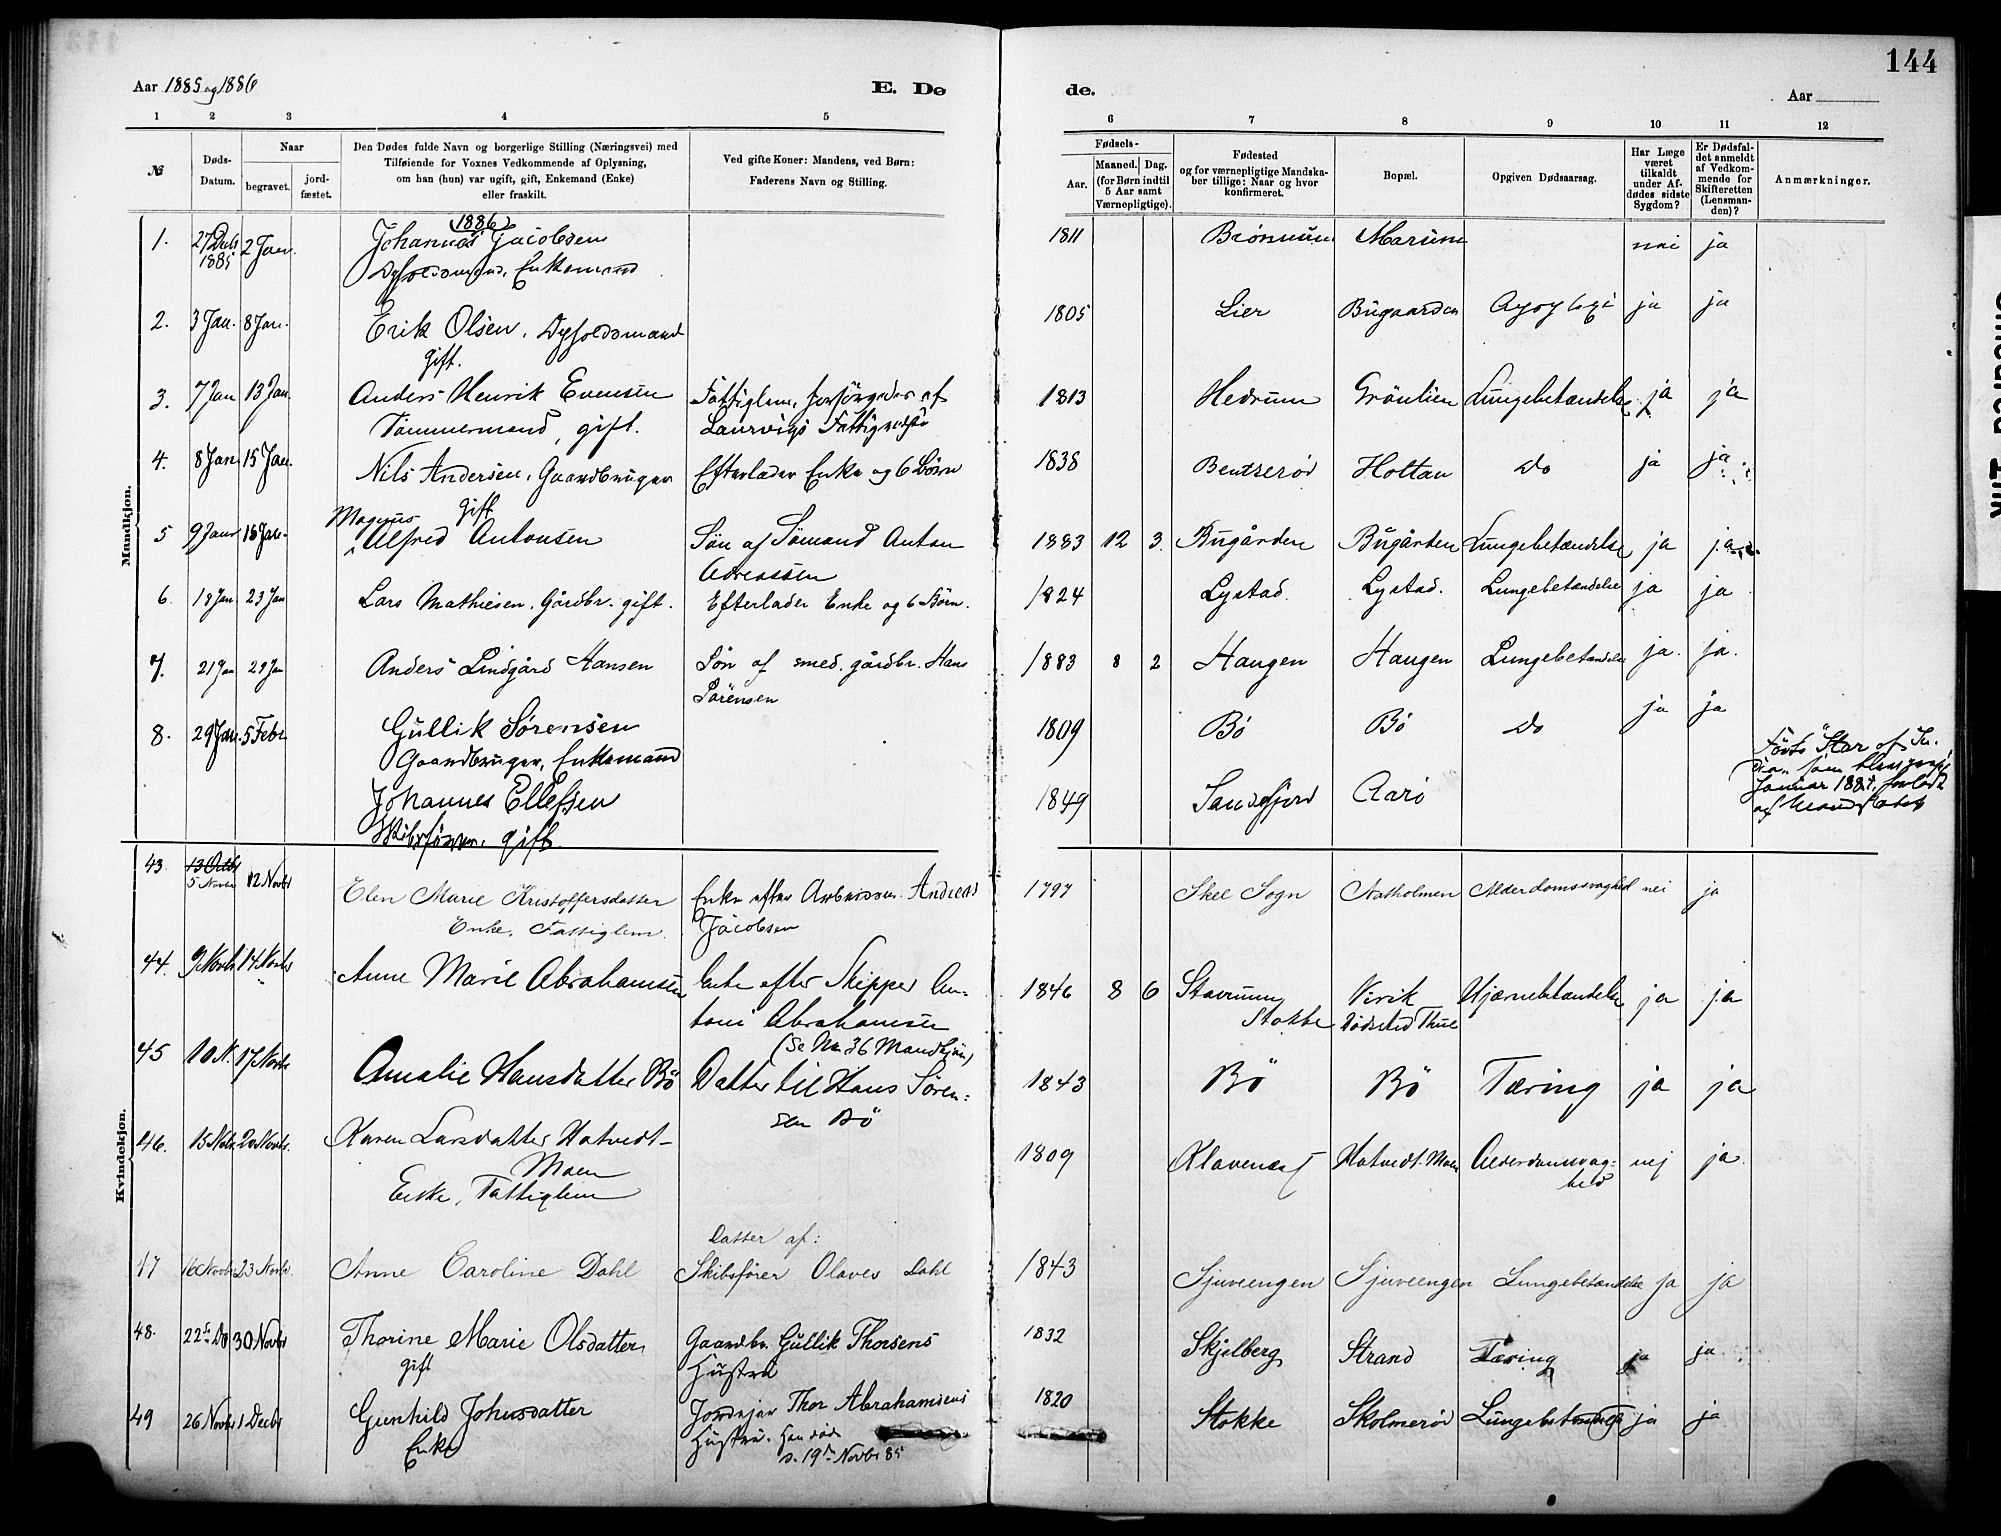 144
Aar 1885 og 1886
E. Dø
de.
Aar
1 2 3 4 5
6 7 8 9 10 11 12
№
Døds-
Datum.
Naar
begravet.
jord-
fæstet.
Den Dødes fulde Navn og borgerlige Stilling (Næringsvei) med
Tilføiende for Voxnes Vedkommende af Oplysning,
om han (hun) var ugift, gift, Enkemand (Enke)
eller fraskilt.
Ved gifte Koner: Mandens, ved Børn:
Faderens Navn og Stilling.
Fødsels-
Aar.
Maaned. Dag.
(for Børn indtil
5 Aar samt
Værnepligtige).
Fødested
og for værnepligtige Mandska-
ber tillige: Naar og hvor
konfirmeret.
Bopæl.
Opgiven Dødsaarsag.
Har Læge
været
tilkaldt
under Af-
dødes sidste
Sygdom?
Er Dødsfal-
det anmeldt
af Vedkom-
mende for
Skifteretten
(Lensman-
den)?
Anmærkninger.
Mandkjøn.
1886
1. 27 Decb 2 Jan. Johannes Jacobsen 1811 nei ja
1885 Enkemand
2. 3 Jan. 8 Jan. Erik Olsen. 1805 Lier Bugaarden ja ja
gift.
3. 7 Jan 13 Jan. Anders Henrik Evensen Fattiglem, forsørgedes af 1813 Hedrum Grönlien Lungebetændelse ja ja
Tømmermand, gift. Laurvigs
4. 8 Jan 15 Jan. Nils Andersen, Gaardbruger Efterlader Enke og 6 Børn 1838 Bentserød Holtan do ja ja
gift
Magnus
5 9 Janr 16 Jan. Alfred Antonsen Søn af Sømand Anton 1883 12 3. Bugården Bugården Lungebetændelse ja ja
Andreassen
6. 18 Jan 23 Jan Lars Mathiesen. Gårdbr. gift. Efterlader Enke og 6 Børn. 1824 Lystad. Lystad. Lungebetændelse ja ja
7. 21 Jan 29 Jan Anders Lindgård Hansen Søn af smed, gårdbr. Hans 1883 8 2 Haugen Haugen Lungebetændelse ja. ja.
Sørensen
8. 29 Jan. 5 Febr Gullik Sørensen 1809 Bö Bö do ja ja
Gaardbruger, Enkemand
Johannes Ellefsen 1849 Sandefjord Aarö
Skibsfører. gift.
Januar 188
Kvindekjøn.
43. 13 Octb
5 Novbr 12 Novbr Elen Marie Kristoffersdatter Enke efter Andreas 1797 Skee Sogn Natholmen Alderdomssvaghed nei ja
Enke, Fattiglem. Jacobsen
44. 9 Novb 14 Novbr Anne Marie Abrahamsen Enke efter Skipper An- 1846 8 6 Stavrum Virik Hjernebetændelse ja ja
toni Abrahamsen Stokke Dødsted Thue
(Se No 36 Mandkjøn)
45 10 N. 17 Novbr Amalie Hansdatter Bö Datter til Hans Søren- 1843 Bö Bö Tæring ja ja
sen Bö
46. 15 Novb 20 Novbr. Karen Larsdatter Hotvedt- 1809 Klavenæs Hotvedt-Moen Alderdomssvag- nej ja.
Moen hed
Enke, Fattiglem
Datter af:
47 16 Novbr 23 Novbr. Anne Caroline Dahl Skibsfører Olaves Dahl 1843 Sjuveengen Sjuveengen Lungebetændelse ja ja
48. 22de Do 30 Novbr Thorine Marie Olsdatter Gaardbr. Gullik Thorsens 1832 Skjelberg Strand Tæring ja ja
gift Hustru
49 26 Novbr 1 Decbr Gunhild Johnsdatter Jordejer Thor Abrahamsens 1820 Stokke Skolmerød Lungebetændelse ja ja
Enke Hustru. Han døde
d. 19de Novbr 85